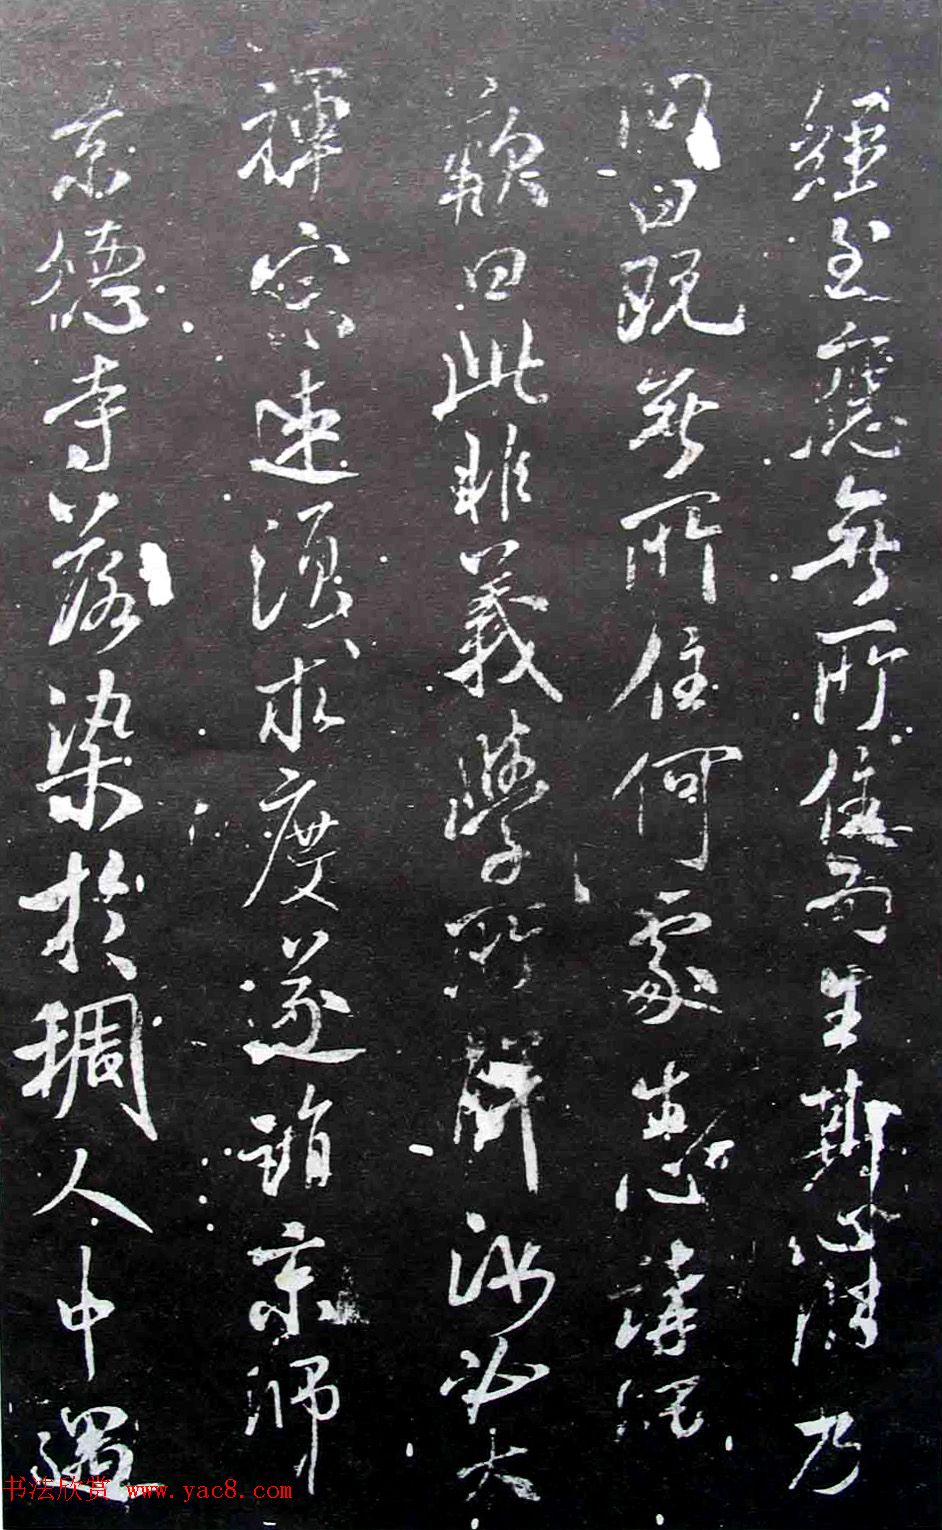 經至應無所住而生斯心清乃
問曰既無所住何處生心講
歎曰此非義學所解汝必大
禪宗速須求度遂詣京師
景德寺落染於稠人中遇
书法欣赏 www.yac8.com